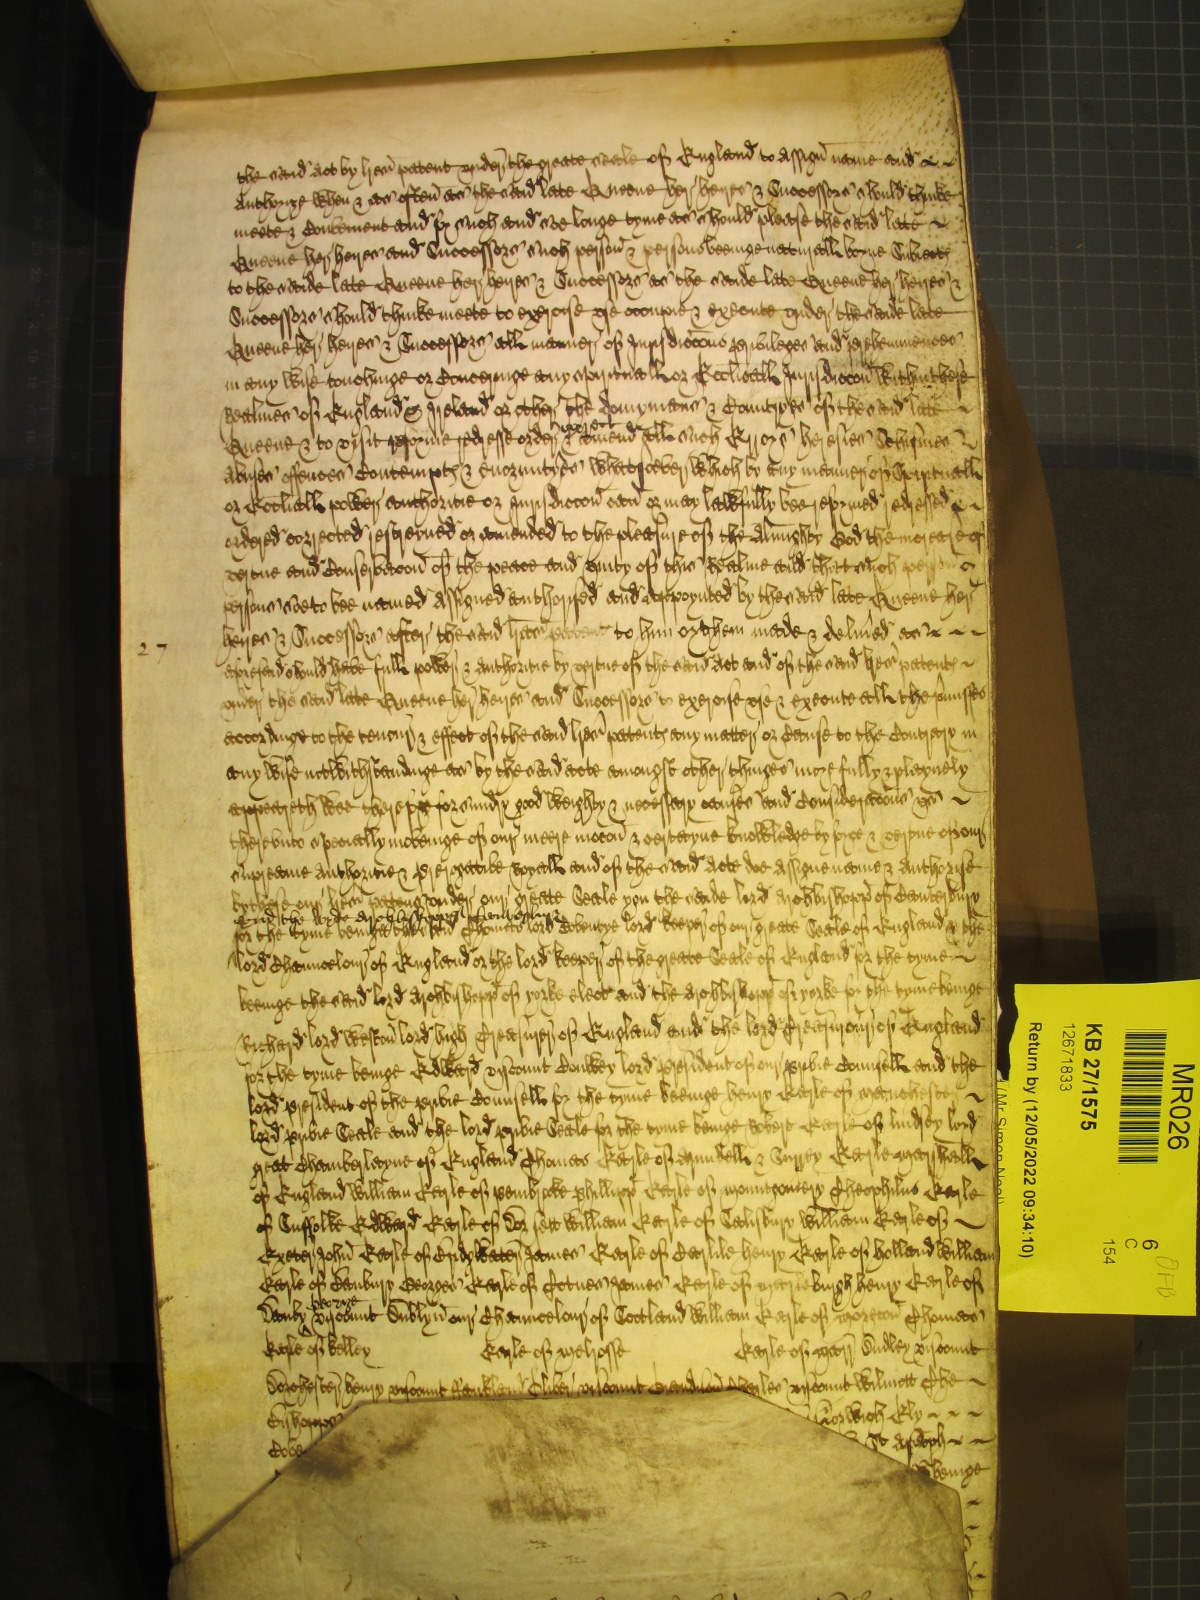 the said Act by lres patent under the greate seale of England to Assign name and
Authorize when & as often as the said late Queene her heyres & Successors should thinke
meete & Convenient and for such and soe longe tyme as should please the said late
Queene her heyres and Successors such person & persons beeinge naturall borne Subiects
to the saide late Queene her heyres & Successors as the saide late Queene her heyres &
Successors should thinke meete to exercise use occupie & execute under the saide late
Queene her heyres & Successors all manner of Jurisdiccons priviledges and preheminences
in any wise touchinge or Concerninge any spirituall or Ecclicall Jurisdiccon within these
Realmes of England & Ireland or other the domynions & Countryes of the said late
Queene & to visit reforme redresse order correct & amend all such Errors heresies Schismes
Abuses offences Contempts & enormityes whatsoever which by any manner of Spirituall
or Ecclicall power authoritie or Jurisdiccon can or may lawfully bee reformed redressed
ordered corrected restreyned or amended to the pleasure of the Almighty God the increase of
vertue and Conservacon of the peace and unity of this Realme and that such person or
persons soe to bee named Assigned authorised and appoynted by the said late Queene her
heyres & Successors after the said lres patent to him or them made & delived as
27
aforesaid should have full power & authoritie by vertue of the said Act and of the said lres patents
under the said late Queene her heyres and Successors to exercise use & execute all the pmisses
accordinge to the tenour & effect of the said lres patents any matter or Cause to the Contrary in
any wise notwithstandinge as by the said acte amongst other thinges more fully & playnely
appeareth Wee therefore for sundry good weighty & necessary causes and Consideracons us
thereunto specially movinge of our meere mocon & certayne knowledge by force & vertue of our
supreame Authoritie & prerogative Royall and of the said Acte doe Assigne name & Authorise
by these our lres patents under our greate Seale you the saide lord Archbishopp of Canterbury
for the tyme beinge the said Thomas lord Coventrye lord keeper of our greate Seale of England & the
lord Chauncelour of England or the lord keeper of the greate Seale of England for the tyme
beeinge the said lord Archbishopp of yorke elect and the Archbishopp of yorke for the tyme beinge
Richard lord Weston lord high Treasurer of England and the lord Treasurour of England
for the tyme beinge Edward viscount Conwey lord president of our privie Counsell and the
lord president of the privie Counsell for the tyme beeinge henry Earle of Manchester
lord privie Seale and the lord privie Seale for the tyme beinge Robert Earle of lindsey lord
great Chamberlayne of England Thomas Earle of Arundell & Surrey Earle Marshall
of England William Earle of pembroke phillipp Earle of Mountgomery Theophilus Earle
of Suffolke Edward Earle of Dorsett William Earle of Salisbury William Earle of
Exeter John Earle of Bridgwater James Earle of Carlile henry Earle of holland William
Earle of Banbury George Earle of Totnes James Earle of Marleburgh henry Earle of
Danby George viscount Dublyn our Chauncelour of Scotland William Earle of Moreton Thomas
Earle of kelley Earle of Melrosse Earle of Marr Dudley viscount
Dorchester henry viscount Oliver viscount Grandison Charles viscount Wilmott The
Bishopps Norwich Ely
St Asaph
beinge
MR026
KB 27/1575
12671833
Return by (12/05/2022 09:34:10)
6
C
154